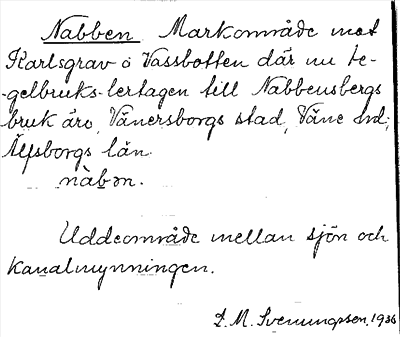 Nabben Markområde mot
Karlsgrav o Vassbotten där nu te-
gelbruks-lertagen till Nabbensbergs
bruk äro, Vänersborgs stad, Väne hd,
Älfsborgs län.
nàbən.
Uddeområde mellan sjön och
kanalmynningen.
L. M. Svenungsson, 1936